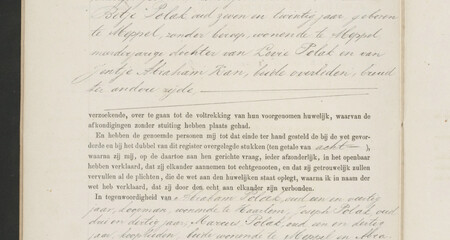 Betje Polak oud zeven en twintig jaar, geboren
te Meppel, zonder beroep, wonende te Meppel
meerderjarige dochter van Levie Polak en van
Jantje Abraham Kan, beide overleden, bruid
ter andere zijde
verzoekende, over te gaan tot de voltrekking van hun voorgenomen huwelijk, waarvan de
afkondigingen zonder stuiting hebben plaats gehad.
En hebben de genoemde personen mij tot dat einde ter hand gesteld de bij de wet gevor-
derde en bij het dubbel van dit register overgelegde stukken (ten getale van acht),
waarna zij mij, op de daartoe aan hen gerichte vraag, ieder afzonderlijk, in het openbaar
hebben verklaard, dat zij elkander aannemen tot echtgenooten, en dat zij getrouwelijk zullen
vervullen al de plichten, die de wet aan den huwelijken staat oplegt, waarna ik in naam der
wet heb verklaard, dat zij door den echt aan elkander zijn verbonden.
In tegenwoordigheid van Abraham Polak, oud een en veertig
jaar, koopman, wonende te Haarlem, Joseph Polak, oud
drie en dertig jaar, Marcus Polak, oud een en dertig
jaar, kooplieden, beide wonende te Meppel en